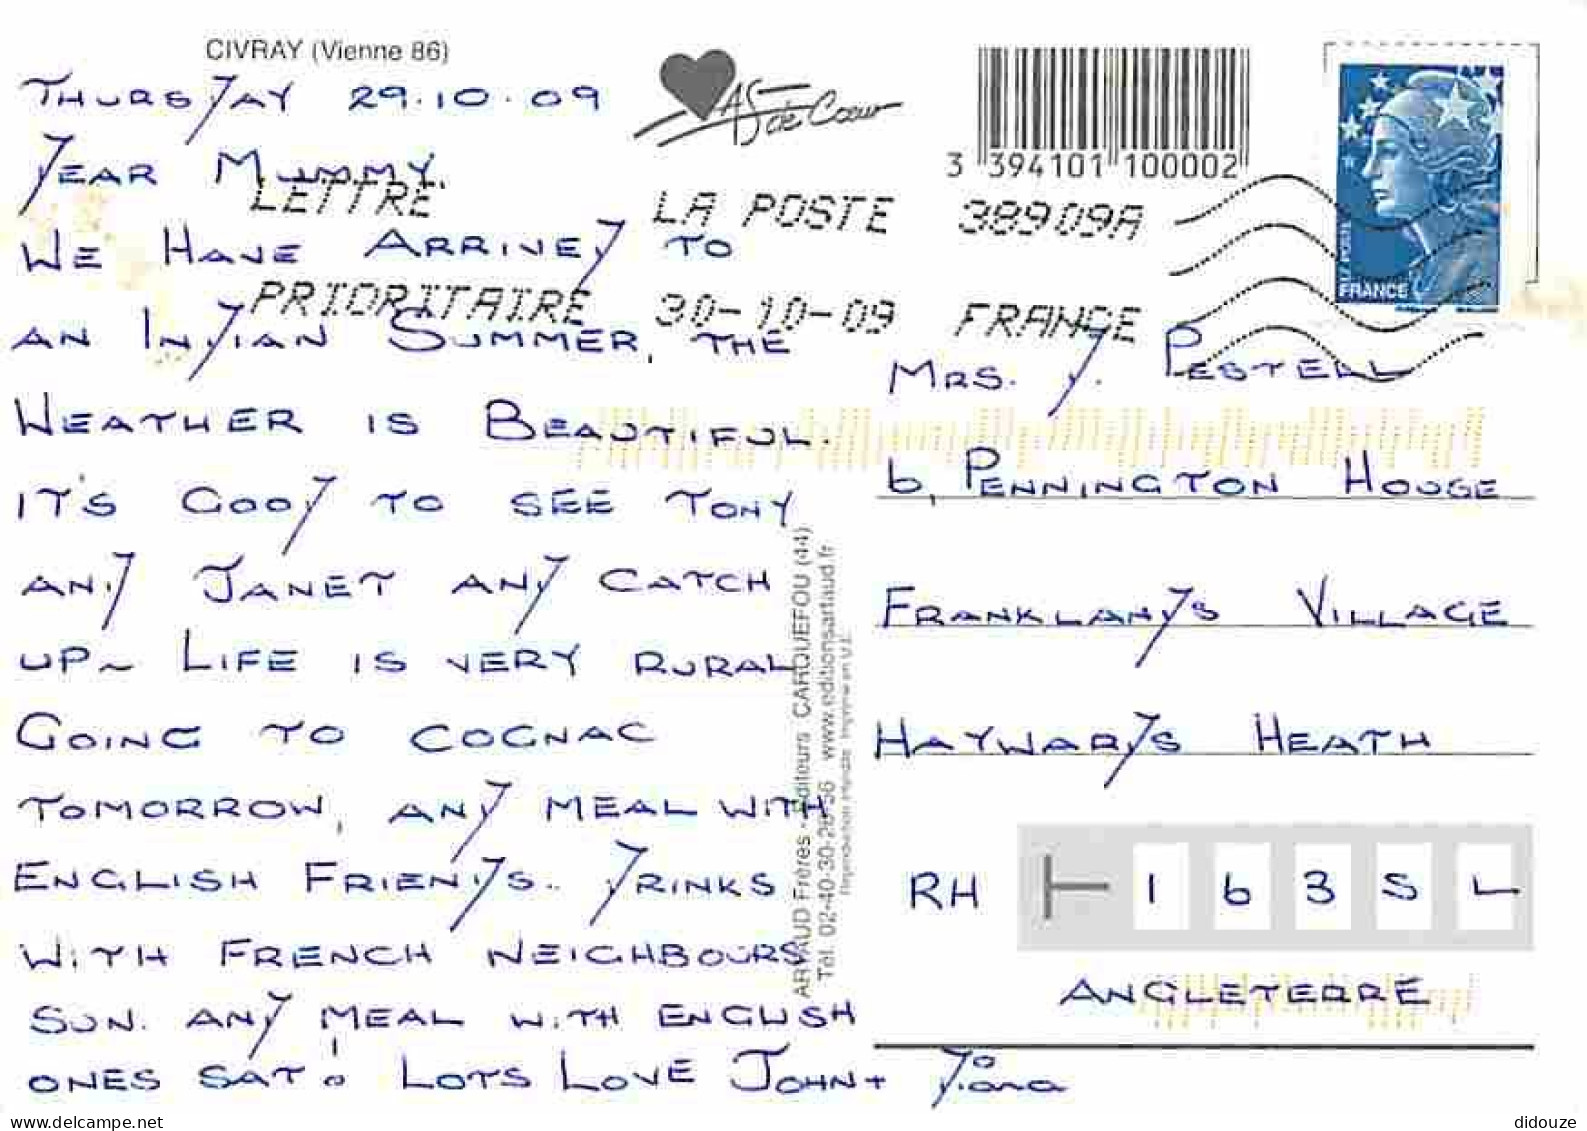 CIVRAY (Vienne 86)
AS de Coeur
3 394101 100002
THURSDAY 29.10.09
DEAR MUMMY,
WE HAVE ARRIVED TO
AN INDIAN SUMMER, THE
WEATHER IS BEAUTIFUL.
IT'S GOOD TO SEE TONY
AND JANET AND CATCH
UP~ LIFE IS VERY RURAL
GOING TO COGNAC
TOMORROW, AND MEAL WITH
ENGLISH FRIENDS.. DRINKS
WITH FRENCH NEIGHBOURS
SUN. AND MEAL WITH ENGLISH
ONES SAT! LOTS LOVE JOHN + Diana
LETTRE LA POSTE 38909A
PRIORITAIRE 30-10-09 FRANCE
LA POSTE
FRANCE
ARTAUD Frères - Éditeurs CARQUEFOU (44)
Tél. 02-40-30-28-56 www.editionsartaud.fr
Reproduction interdite Imprimé en U.E.
MRS. D. PESTELL
6, PENNINGTON HOUSE
FRANKLANDS VILLAGE
HAYWARDS HEATH
RH 1 6 3 S L
ANGLETERRE
didouze